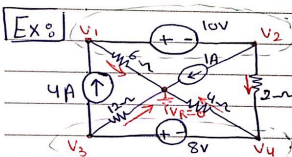 Ex:
V1
10V
V2
6Ω
1A
4A
2Ω
12Ω
4Ω
VR=0
V3
8V
V4